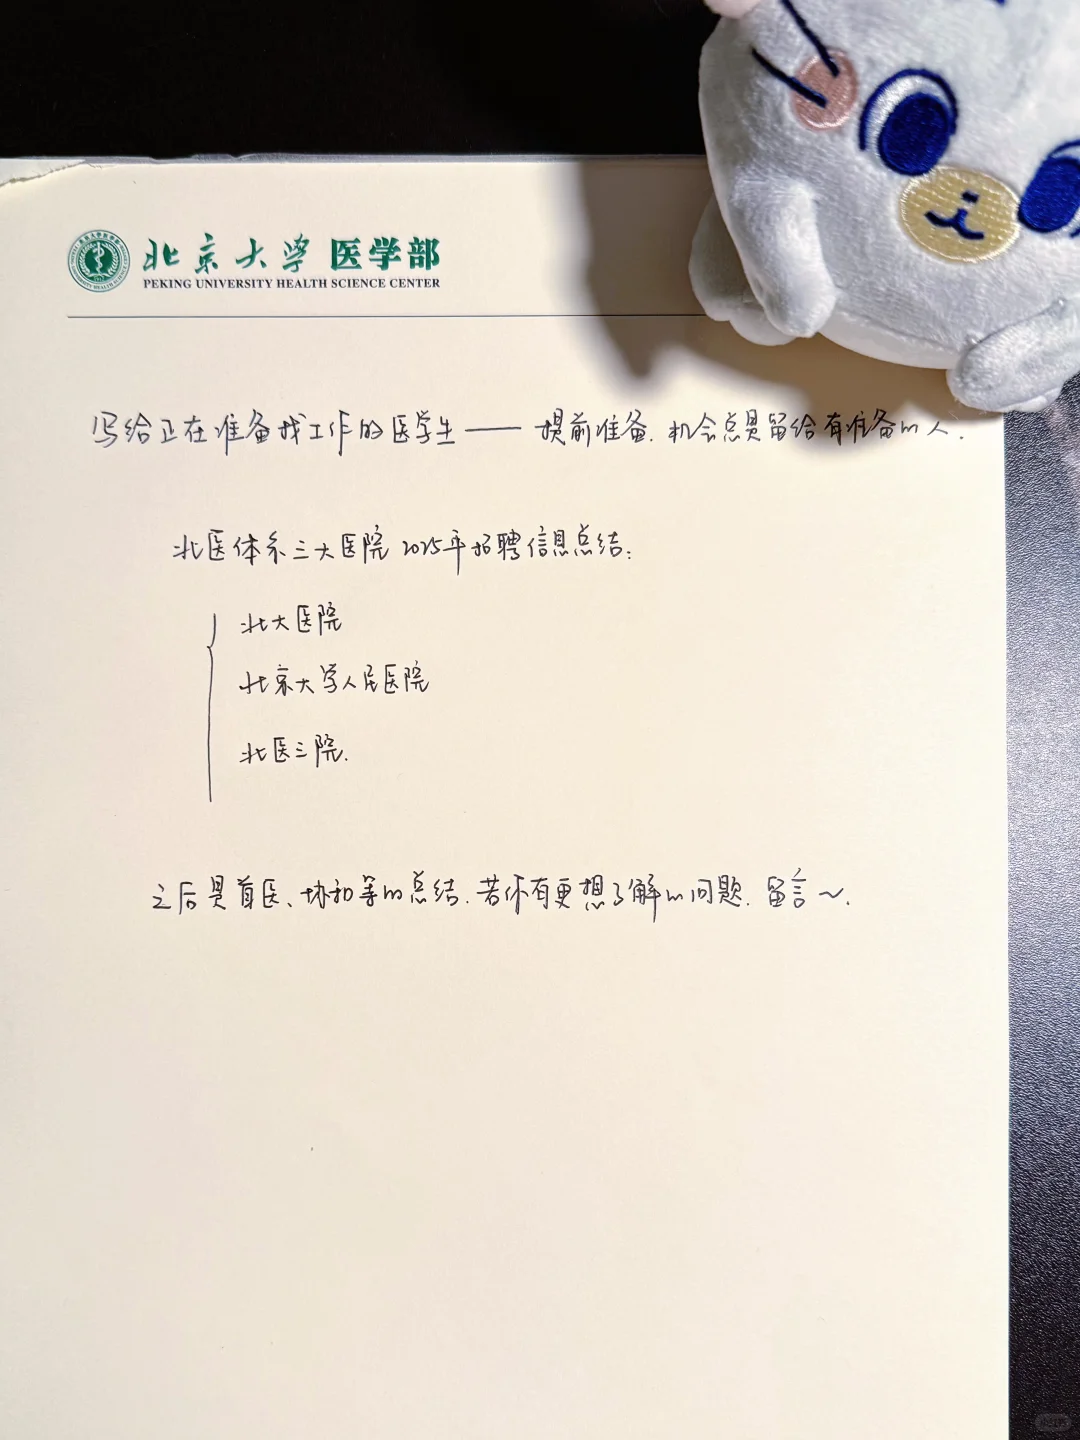 北京大学 医学部
PEKING UNIVERSITY HEALTH SCIENCE CENTER
写给正在准备找工作的医学生——提前准备.机会总是留给有准备的人.
北医体系三大医院2025年招聘信息总结:
北大医院
北京大学人民医院
北医三院.
之后是首医、协和等的总结.若你有更想了解的问题.留言~.